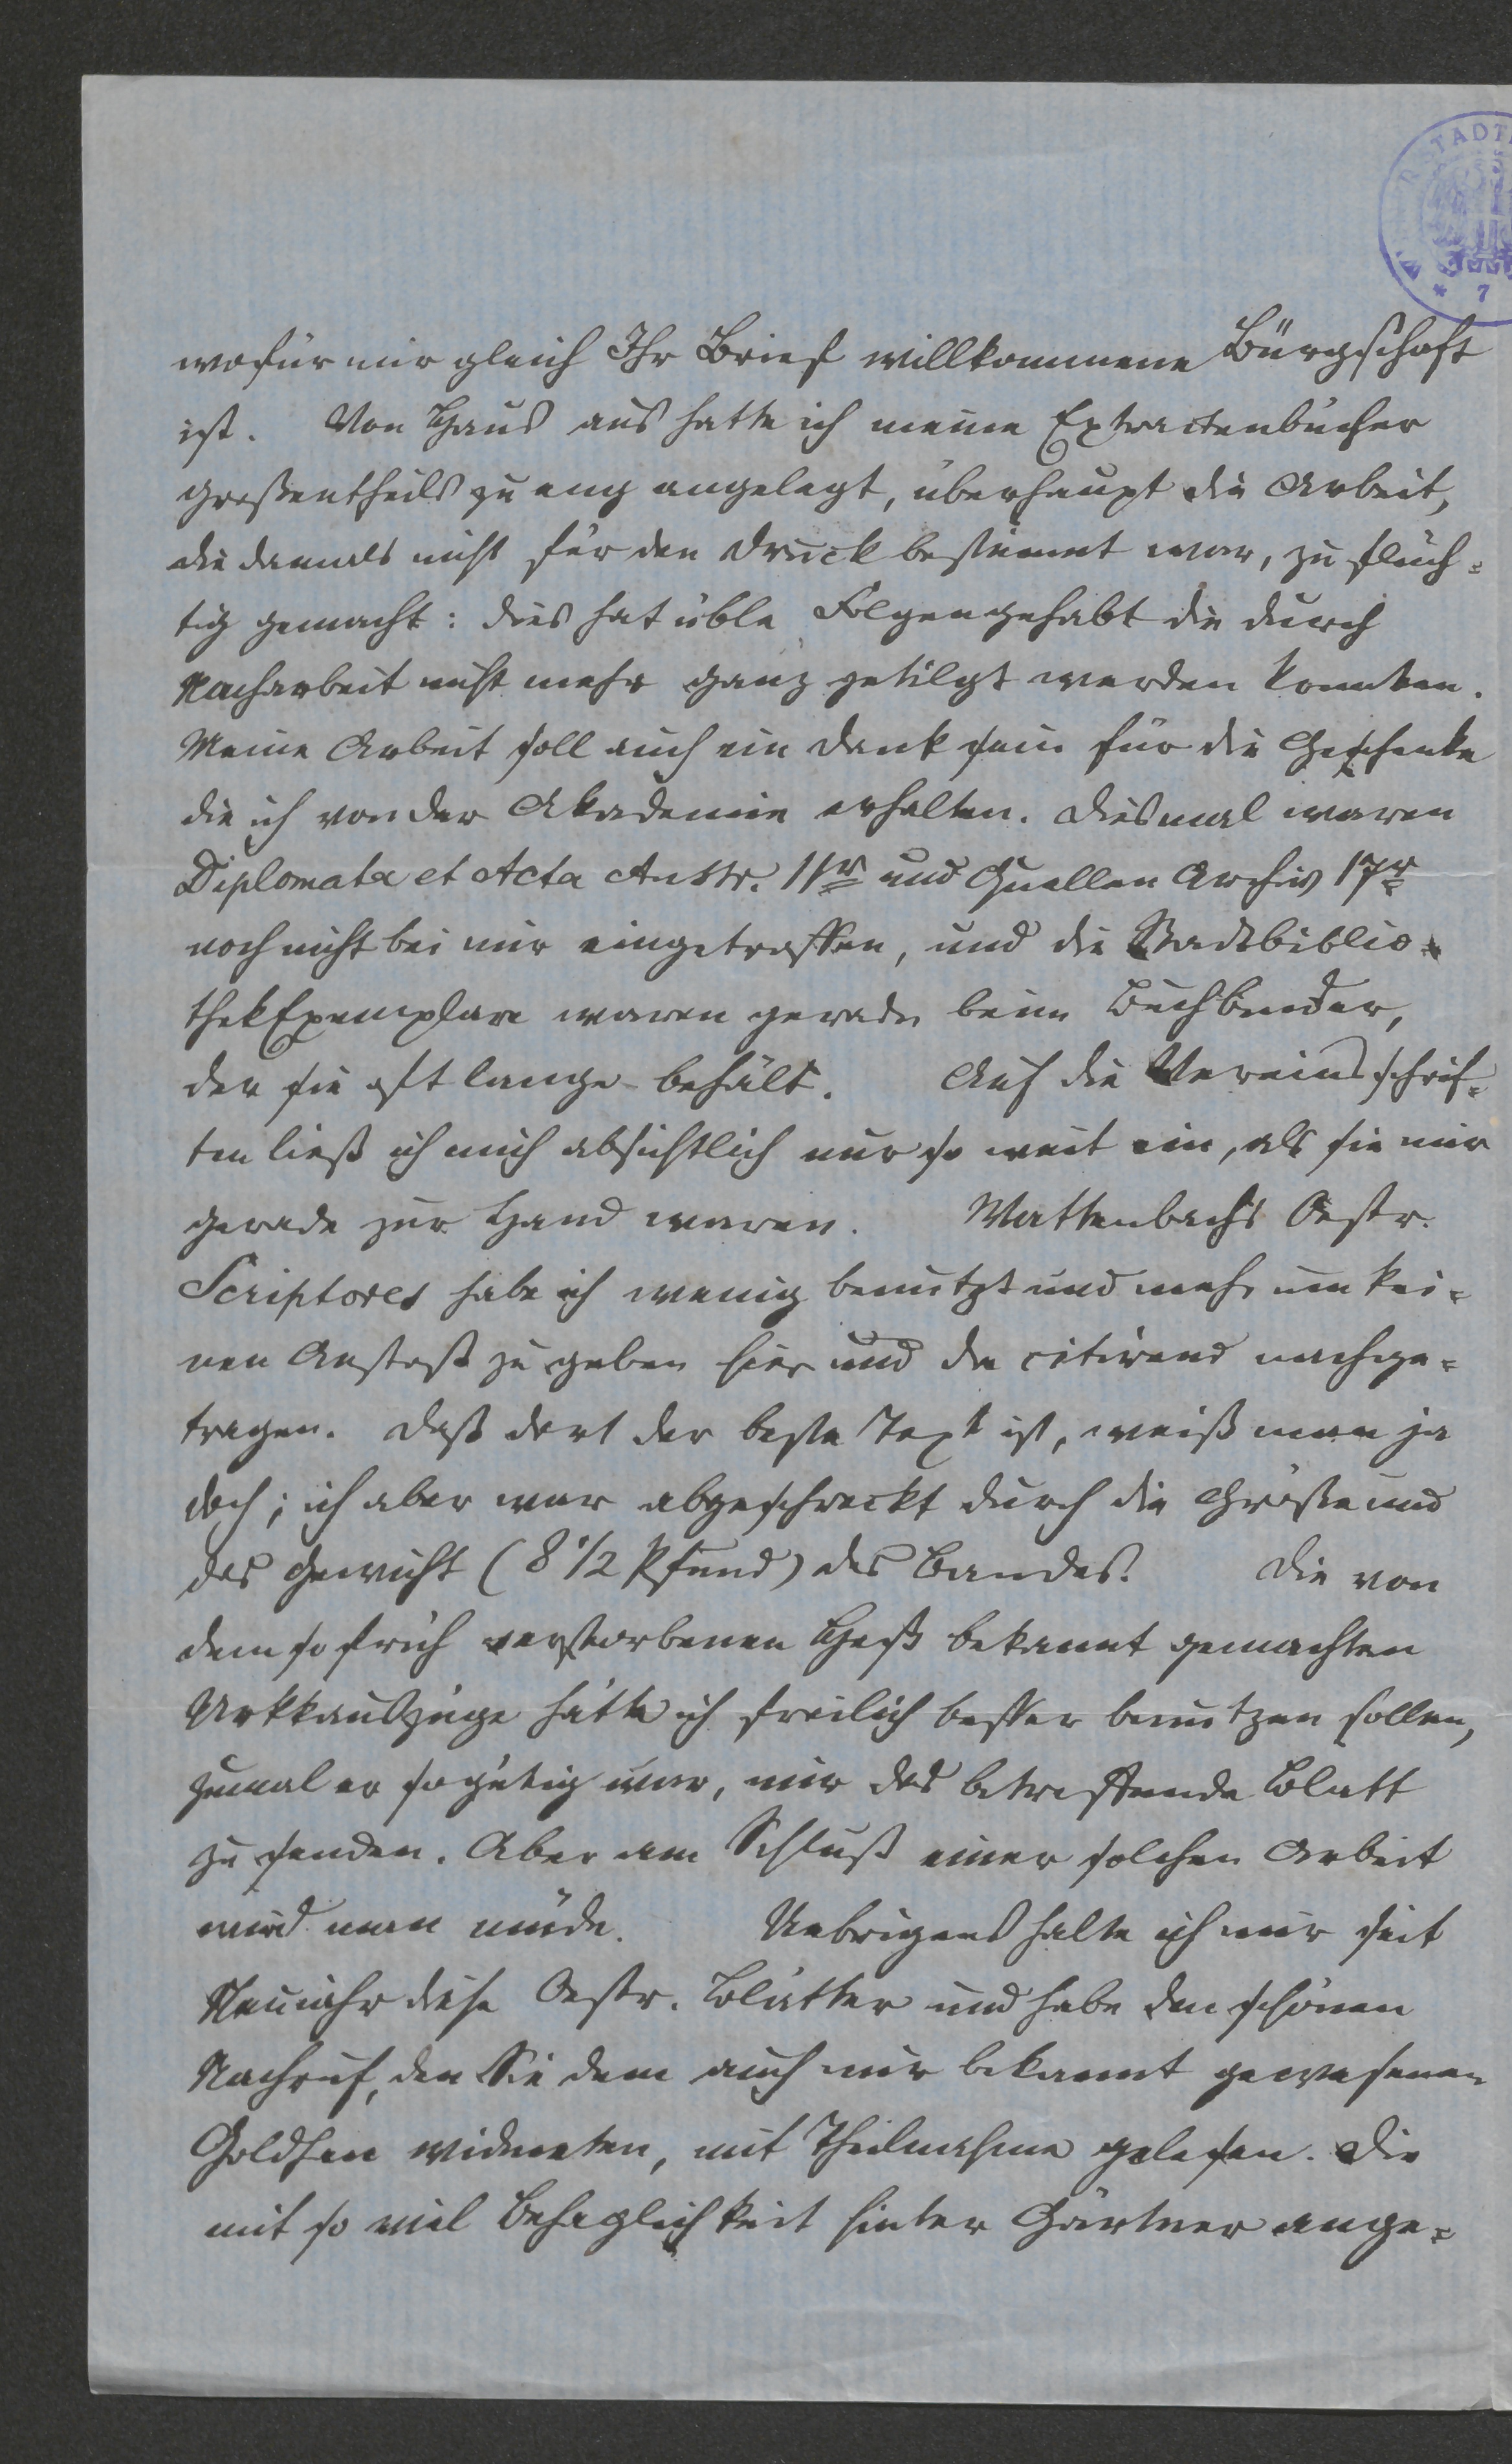 STADT
* 7
wofür mir gleich Ihr Brief willkommene Bürgschaft
ist. Von Haus aus hatte ich meine Extractenbücher
großentheils zu eng angelegt, überhaupt die Arbeit,
die damals nicht für den Druck bestimmt war, zu flüch-
tig gemacht: dies hat üble Folgen gehabt die durch
Nacharbeit nicht mehr ganz getilgt werden konnten.
Meine Arbeit soll auch ein Dank sein für die Geschenke
die ich von der Akademie erhalten. Diesmal waren
Diplomata et Acta Austr. 11r und Quellen Archiv 17r
noch nicht bei mir eingetroffen, und die Stadtbiblio-
thekExemplare waren gerade beim Buchbinder,
der sie oft lange behält. Auf die Vereinsschrif-
ten ließ ich mich absichtlich nur so weit ein, als sie mir
gerade zur Hand waren. Wattenbachs Oestr.
Scriptores habe ich wenig benutzt und mehr um kei-
nen Anstoß zu geben hier und da citirend nachge-
tragen. Daß dort der beste Text ist, weiß man ja
doch; ich aber war abgeschreckt durch die Größe und
das Gewicht (8 1/2 Pfund) des Bandes. Die von
dem so früh verstorbenen Heß bekannt gemachten
Urkkauszüge hätte ich freilich besser benutzen sollen,
zumal er so gütig war, mir das betreffende Blatt
zu senden. Aber am Schluß einer solchen Arbeit
wird man müde. Uebrigens halte ich mir seit
Neujahr diese Oestr. Blätter und habe den schönen
Nachruf, den Sie dem auch mir bekannt gewesenen
Goldhan widmeten, mit Theilnahme gelesen. Die
mit so viel Behaglichkeit hinter Gärtner ange-